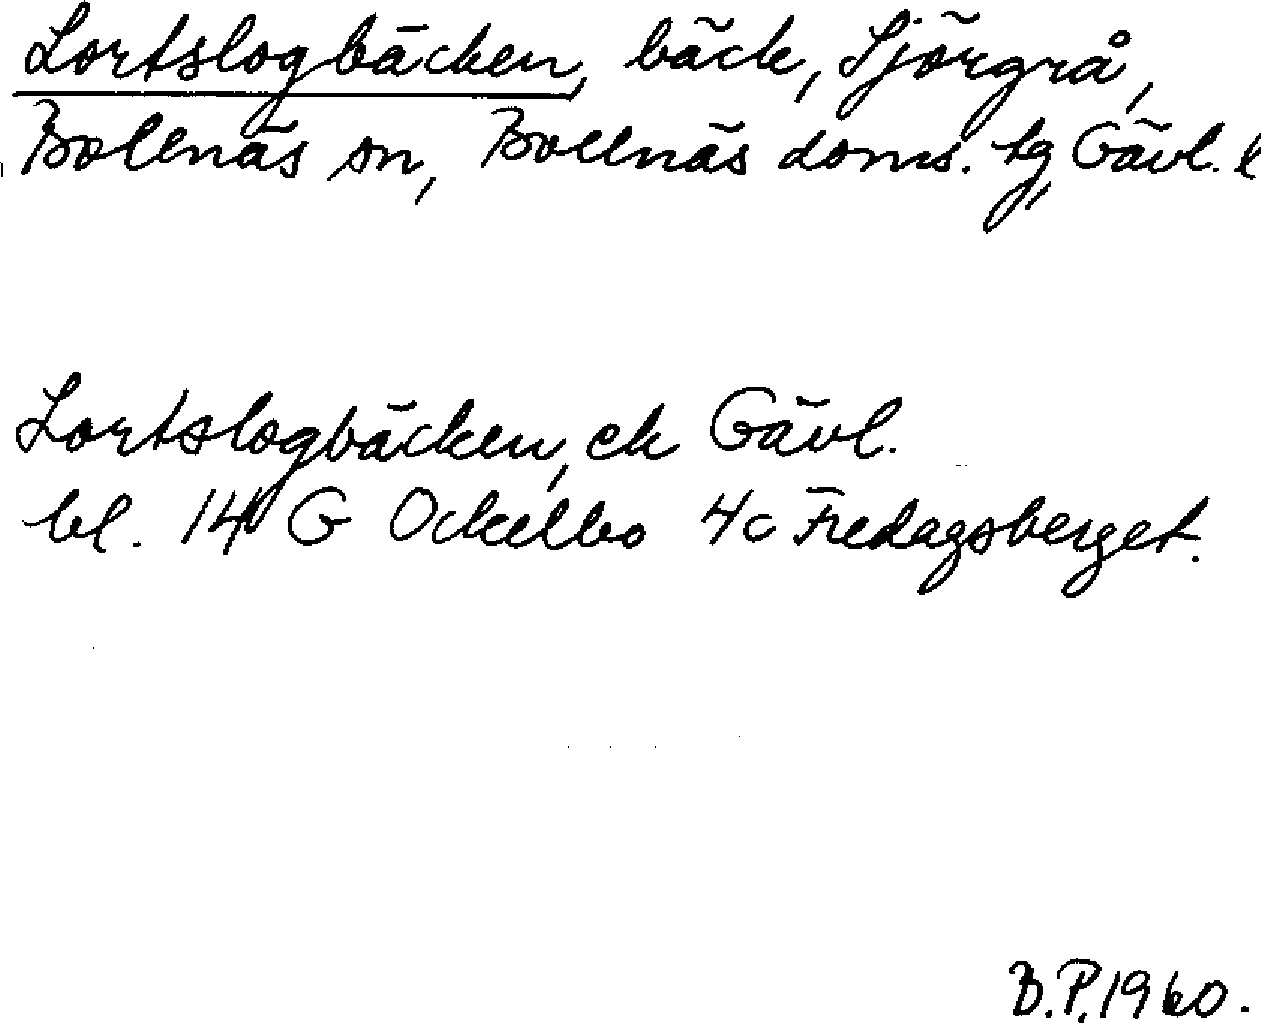 Lortslogbäcken, bäck, Sjörgrå,
Bollnäs sn, Bollnäs doms. tg, Gävl. l
Lortslogbäcken, ek Gävl.
bl. 14 G Ockelbo 4c Fredagsberget.
B.P. 1960.